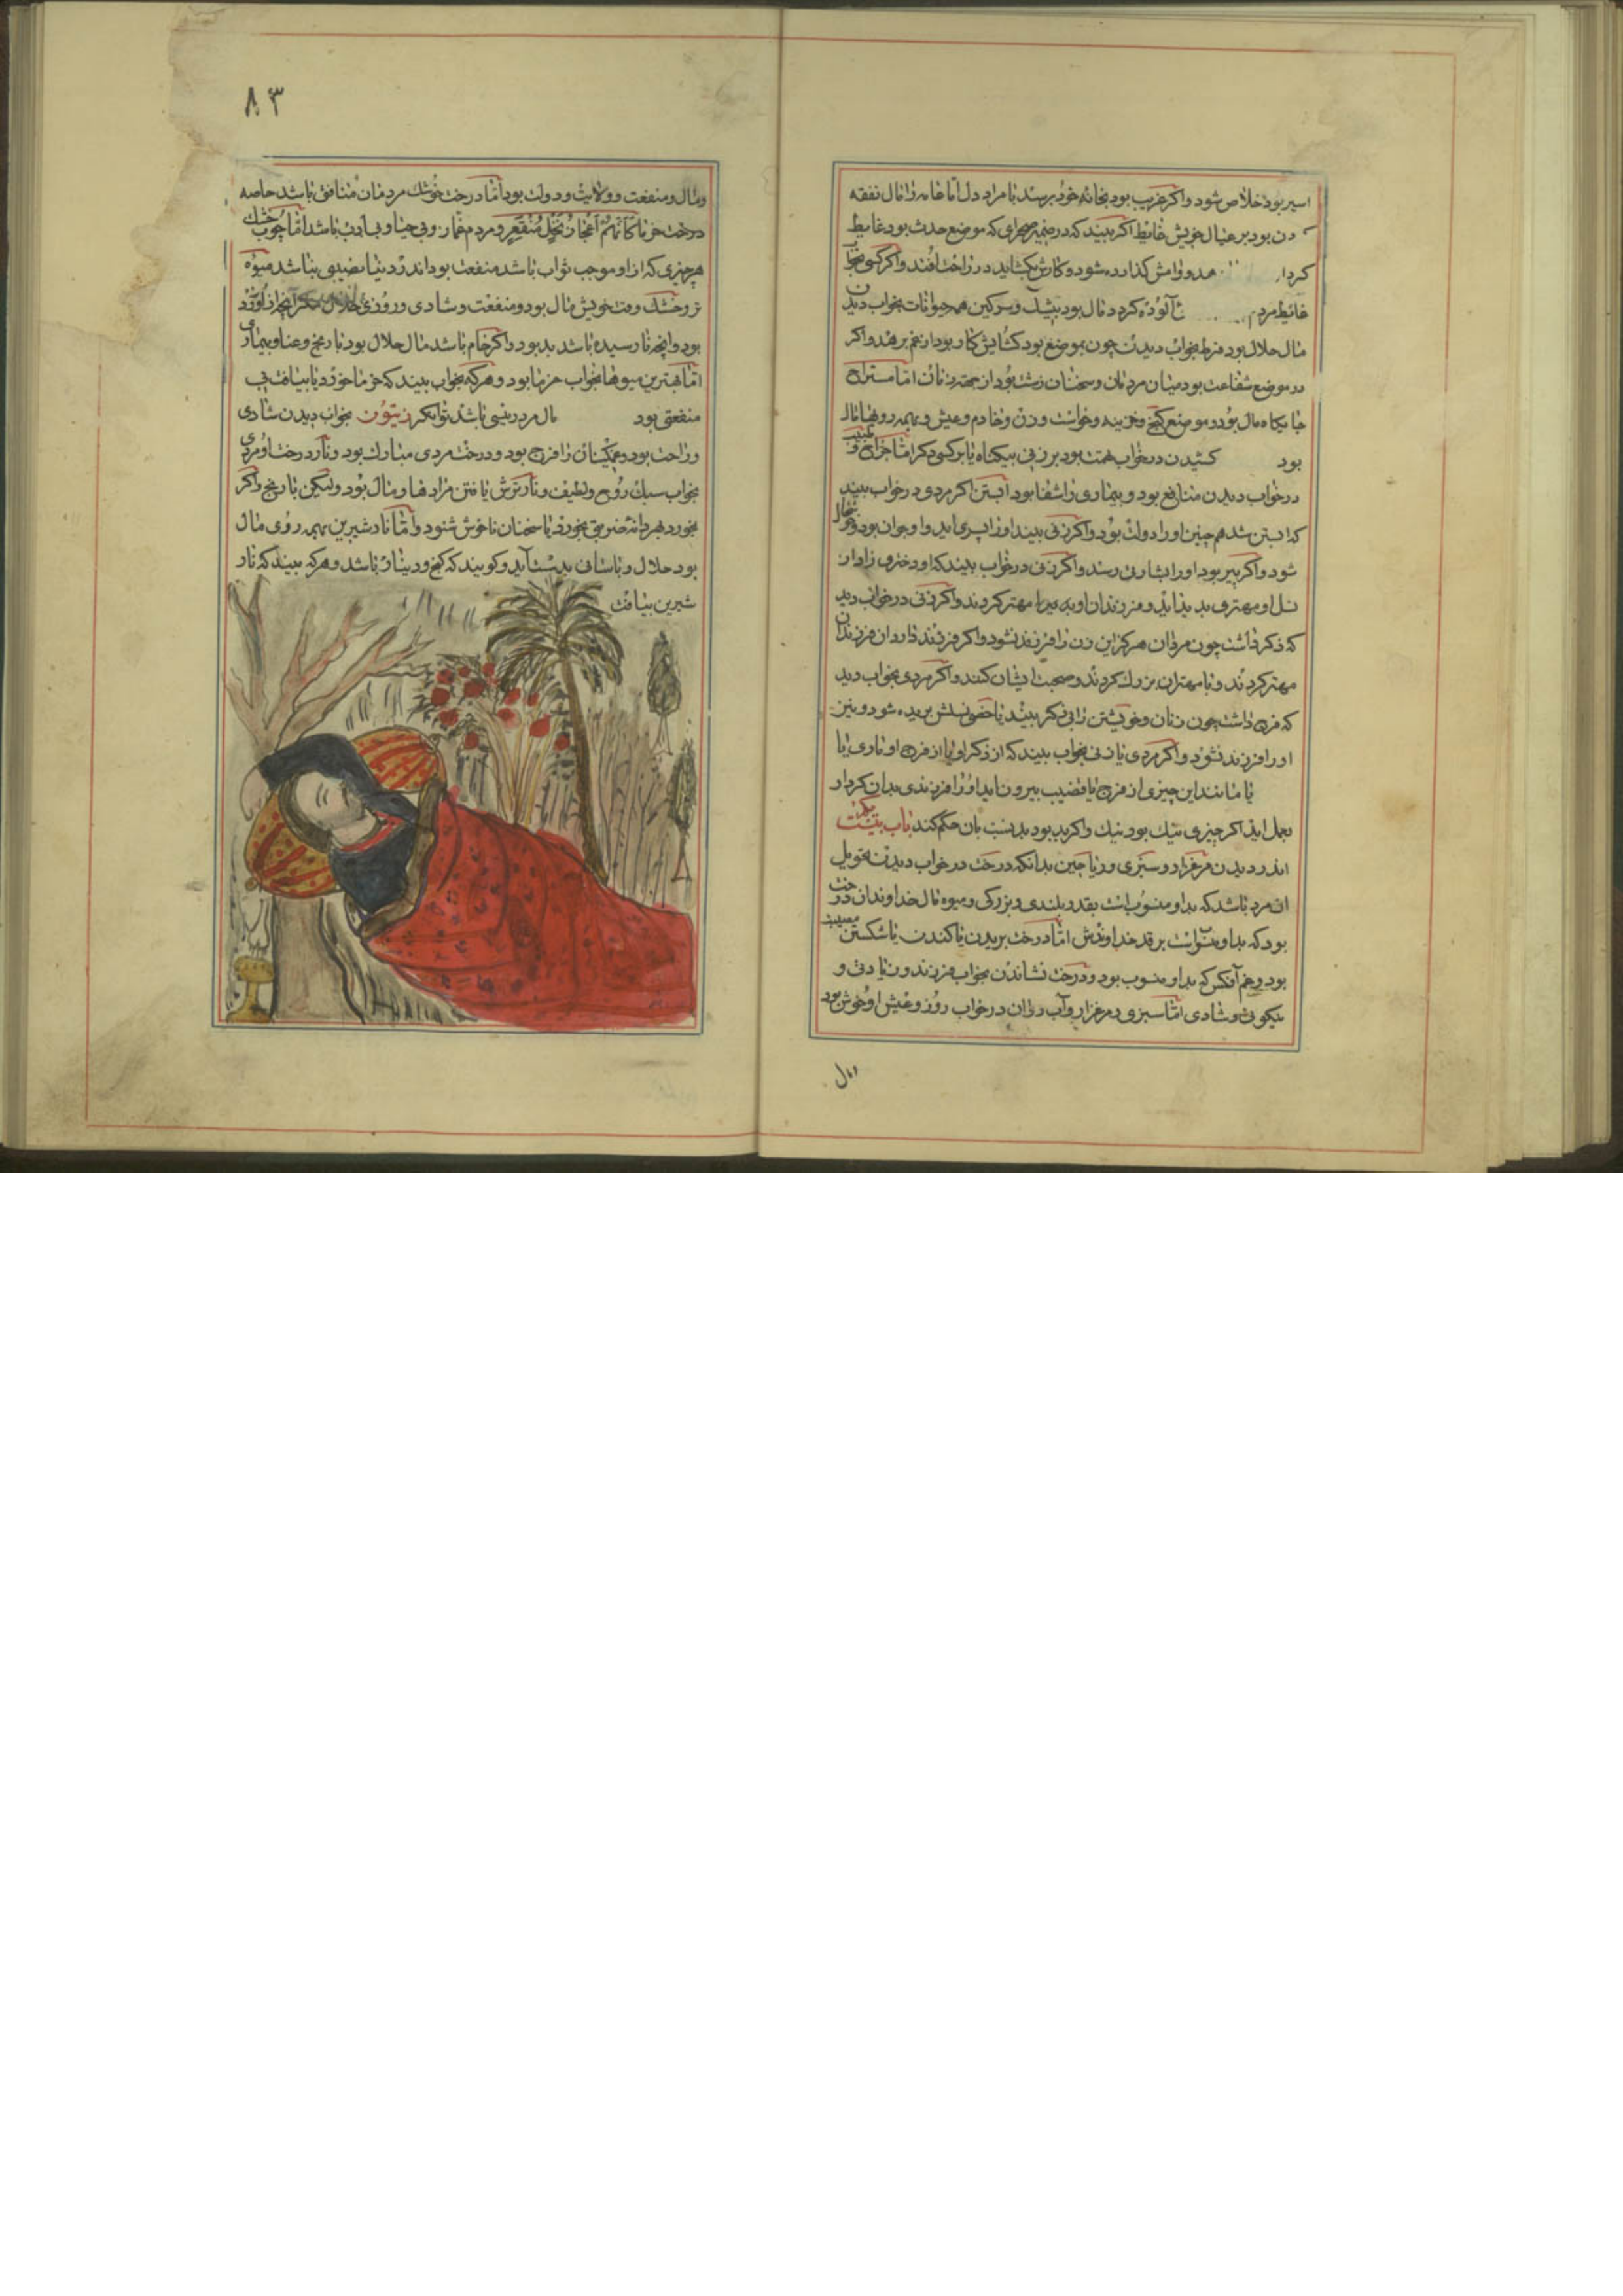 اسیر بود خلاص شود و اکر غریب بود بخانه خود برسد با مراد دل اما خامه را مال نفقه
دن بود بر عیال خویش غائط اکر بیند که در ضمیر صحرای که موضع حدث بود غایط
کردار وامش کذارده شود و کارش بکشاید در راحت افتد و اکر کسی بخوا
غائط مردم آلوده کردد مال بود بیشک و سرکین همه حیوانات بخواب دیدن
مال حلال بود ضرط بخواب دیدن چون بموضع بود کشایش کار بود از غم برهد و اکر
در موضع شفاعت بود میان مردمان و سخنان زشت بود از جهت زنان اما مستراح
جایکاه مال بود و موضع کنج و خزینه و خواست و زن و خادم و عیش و بهمه رویها مال
بود کشیدن در خواب تهمت بود بر زنی بیکناه یا بر کسی دکر اما خراج و
در خواب دیدن منافع بود و بیماری را شفا بود آبستن اکر مردی در خواب بیند
که ابستن شد همچنین او را دولت بود و اکر زنی بیند او را پسری اید و او جوان بود
شود و اکر پیر بود او را بشارتی رسد و اکر زنی در خواب بیند که او دختری زاد از
نسل او مهتری پدیداید و فرزندان او مهتر کردند و اکر زنی در خواب دید
که ذکر داشت چون مردان هرکز این زن را فرزند نشود و اکر فرزند دارد ان فرزندان
مهتر کردند و با مهتران بزرک کردند و صحبت ایشان کنند و اکر مردی بخواب دید
که فرج داشت چون زنان و خویشتن را بی ذکر بیند نسلش بریده شود و نیز
او را فرزند نشود و اکر مردی یا زنی بخواب بیند که از ذکر او یا از فرج او ماری یا
یا مانند این چیزی از فرج یا قضیب بیرون اید او را فرزندی بدان کردار
بعمل اید اکر چیزی نیک بود نیک و اکر بد بود بد بان حکم کند باب بیست یکم
اندر دیدن مرغزار و سبزی و ریاحین بدانکه درخت در خواب دیدن بتحویل
ان مرد باشد که بدو منسوب است بقدر بلندی و بزرکی و میوه مال خداوندان درخت
بود که بدو منسوبست بر قدر خداوندش اما درخت بریدن یا کندن یا شکستن مصیبت
بود و غم آنکس که بدو منسوب بود و درخت نشاندن بخواب فرزند و زیادتی و
نیکوئی و شادی اما سبزی و مرغزار و آب روان در خواب روز و عیش او خوش بود
۸۳
و مال و منفعت و ولایت و دولت بود اما درخت خشک مردمان منافق باشد خاصه
درخت خرما کانهم اعجاز نخل منقعر و مردم غماز و بی حیا و بی ادب باشد اما چوب خشک
هر چیزی که از او موجب ثواب باشد منفعت بود اندر دنیا نصیبی بباشد میوه
تر و خشک وقت خویش مال بود و منفعت و شادی و روزی حلال مکر آنچه از او زرد
بود و انچه نارسیده باشد بد بود و اکر خام باشد مال حلال بود با رنج و عنا و بیماری
اما بهترین میوها بخواب خرما بود و هر که بخواب بیند که خرما خورد یا بیافت بی
منفعتی بود مال مرد رسی باشد توانکر زیتون بخواب دیدن شادی
و راحت بود و غمکینان را فرج بود و درخت مردی مبارک بود و نار درخت او مردی
بخواب سبک روح و لطیف و نار ترش یافتن مرادها و مال بود ولیکن با رنج و اکر
بخورد بهر دانه ضربتی بخورد یا سخنان ناخوش شنود و اما نار شیرین بهمه روی مال
بود حلال و باسانی بدست آید و کویند که کنج و دینار باشد و هر که بیند که نار
شیرین بیافت